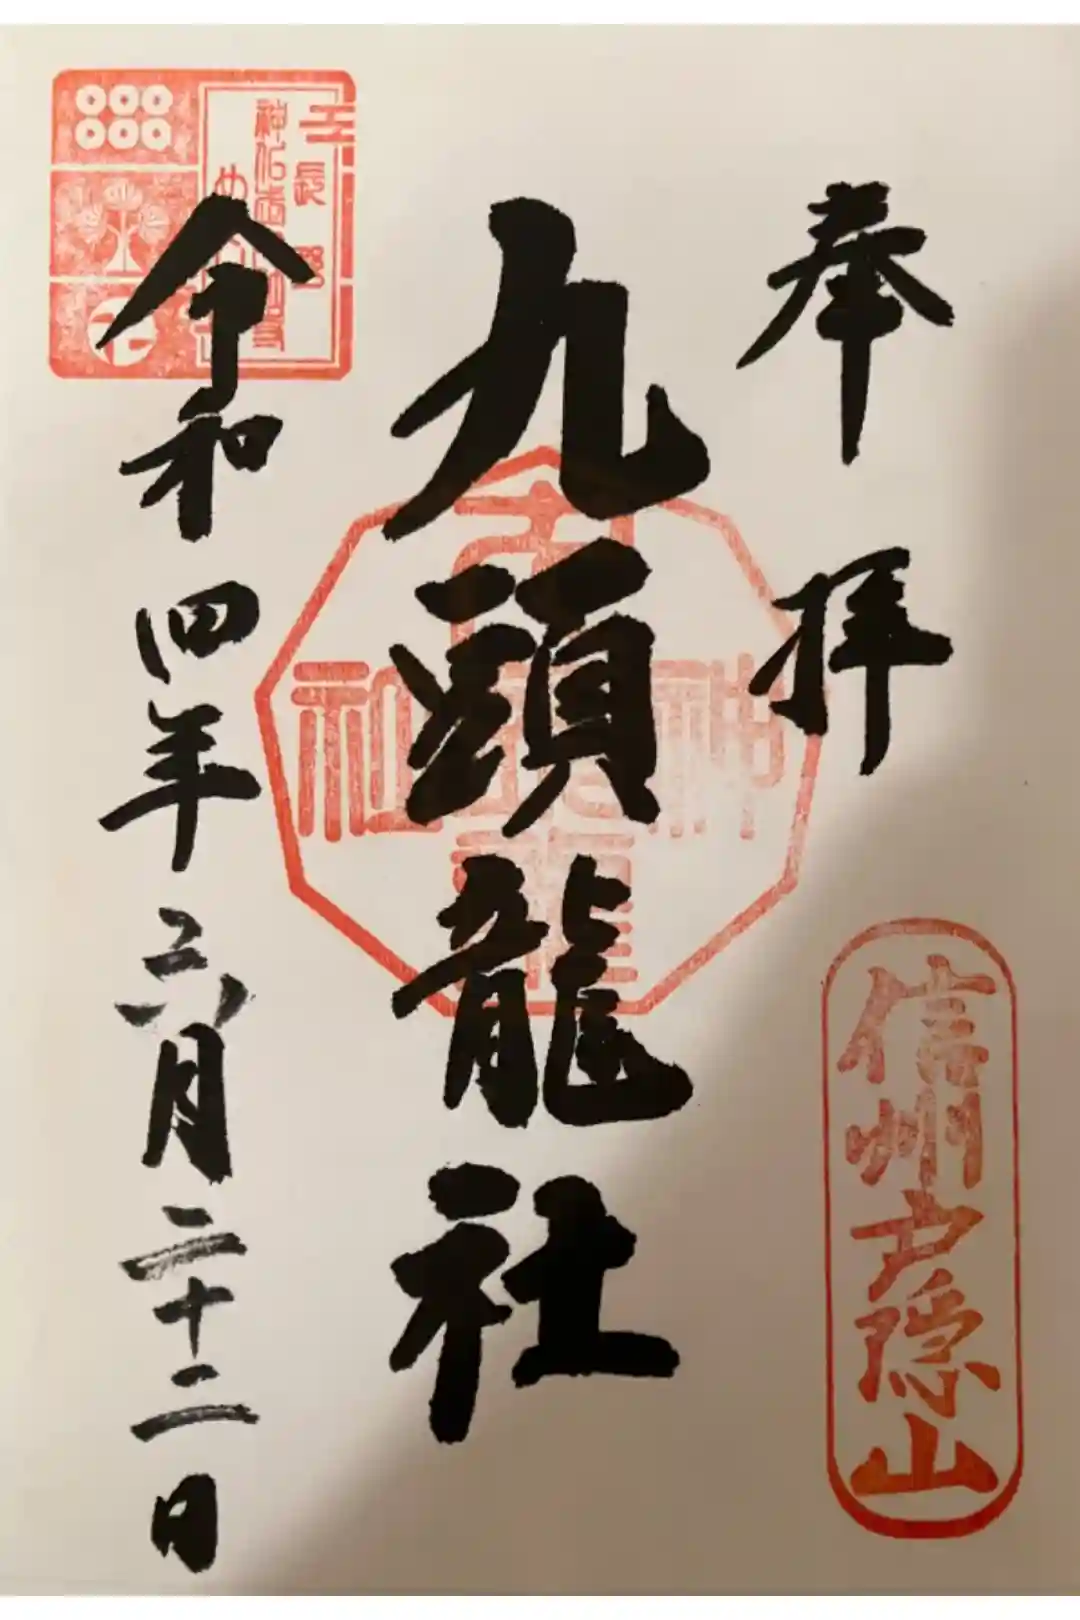 奉拝
信州戸隠山
九頭龍社
神社
令和四年六月二十二日
長野